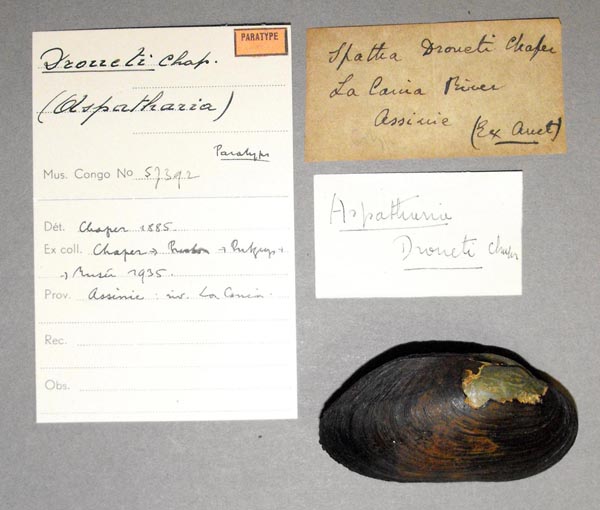 PARATYPE
Droueti Chap.
(Aspatharia)
Paratype
Mus. Congo No 57392
Dét. Chaper 1885.
Ex coll. Chaper → → Putzeys →
→ Musée 1935.
Prov. Assinie : riv. La
Rec.
Obs.
Spatha Droueti Chaper
La River
Assinie (Ex Ancey)
Aspatharia
Droueti Chaper